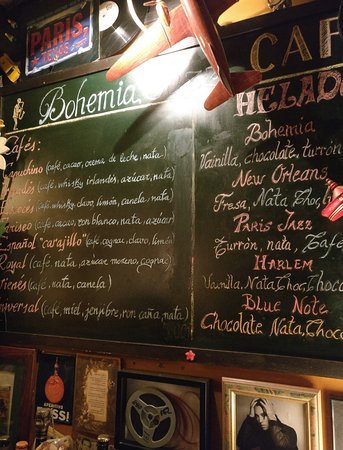 PARIS
TEXAS
Bohemia
Cafés:
(café, cacao, crema de leche, nata)
(café, whisky irlandés, azúcar, nata)
(café, whisky, clavo, limón, canela, nata)
(café, cacao, ron blanco, nata, azúcar)
Español "carajillo" (café, cognac, clavo, limón)
Royal (café, nata, azúcar moreno, cognac)
Vienés (café, nata, canela)
Universal (café, miel, jenjibre, ron caña, nata)
CAF
HELADO
Bohemia
Vainilla, Chocolate, turrón
New Orleans
Fresa, Nata, Choc,
Paris Jazz
Turrón, nata, Café
Harlem
Vainilla, Nata, Choc,
Blue Note
Chocolate Nata, Choco